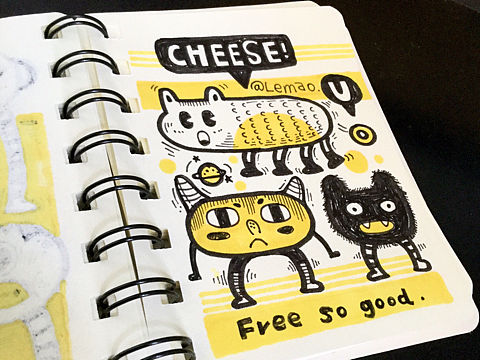 CHEESE!
@Lemao.
U
Free so good.